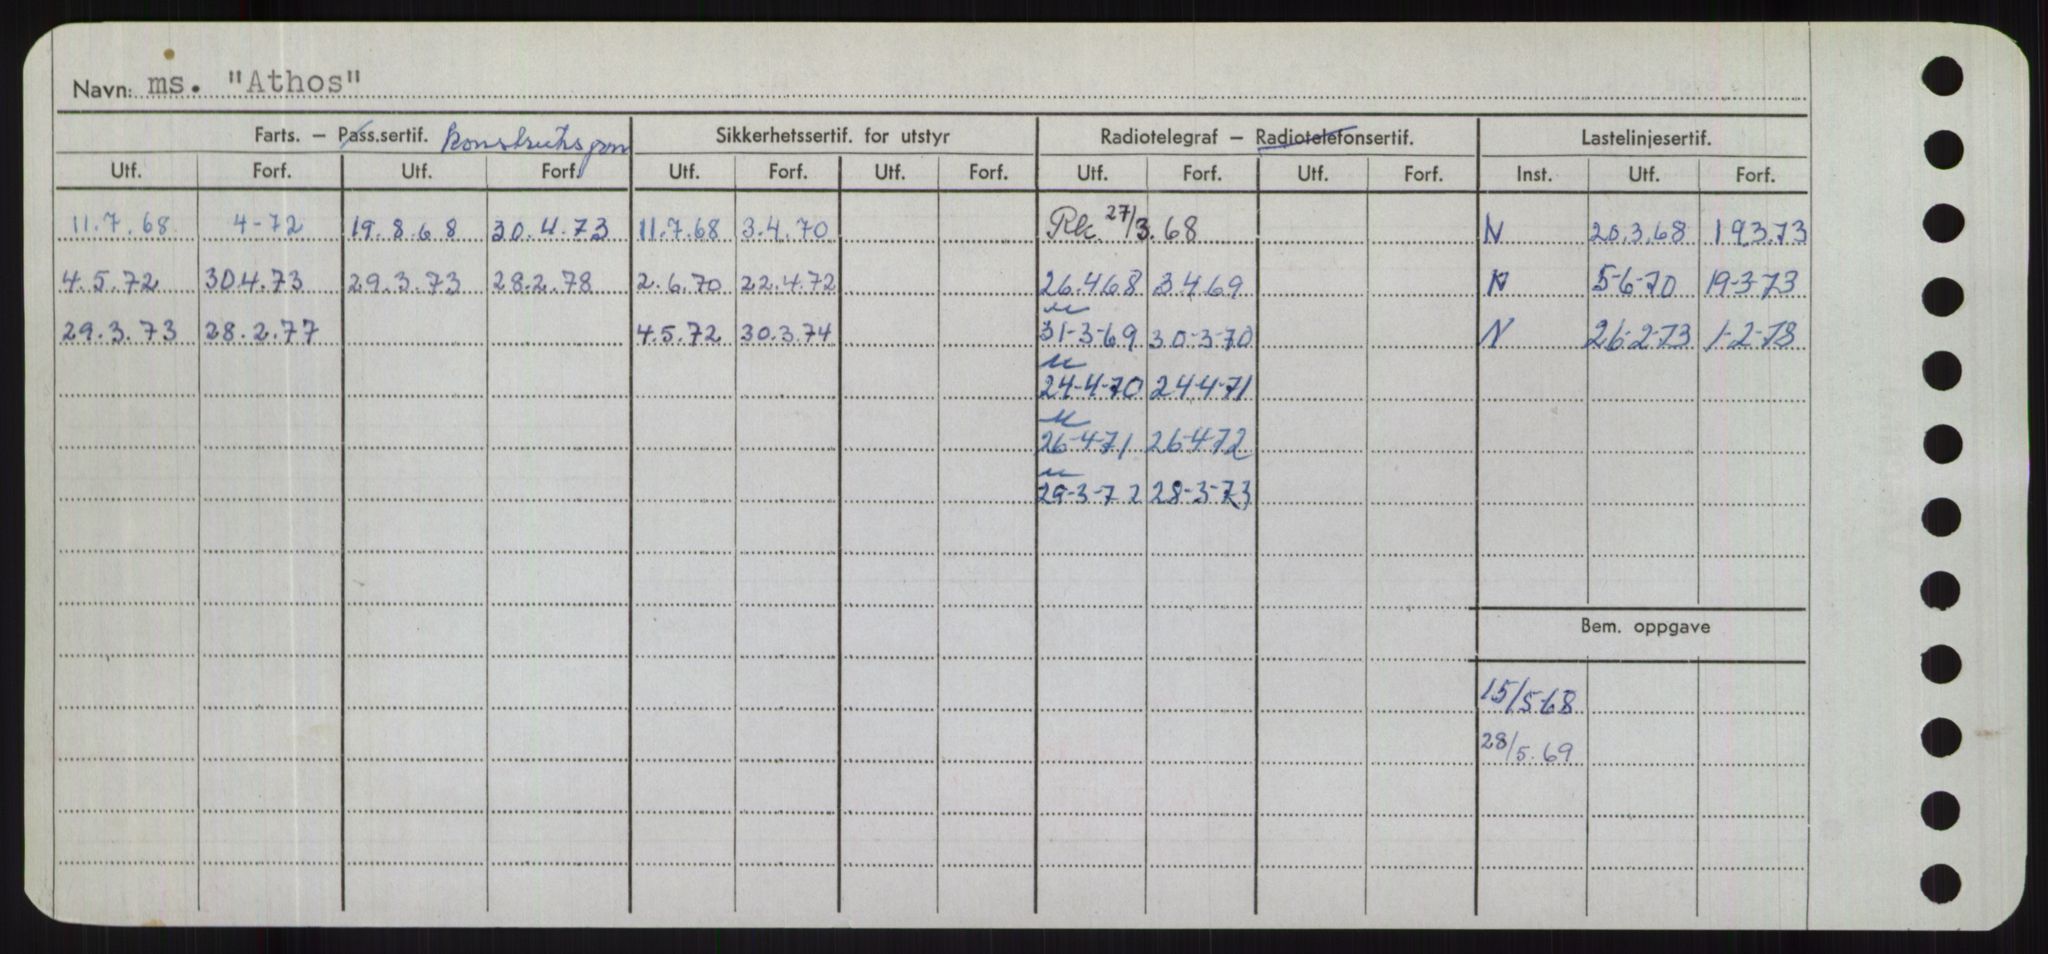 Navn: ms. "Athos"
Farts. – Pass.sertif. Konstruksjon Sikkerhetssertif. for utstyr Radiotelegraf – Radiotelefonsertif. Lastelinjesertif.
Utf. Forf. Utf. Forf. Utf. Forf. Utf. Forf. Utf. Forf. Utf. Forf. Inst. Utf. Forf.
11.7.68 4-72 19.8.68 30.4.73 11.7.68 3.4.70 27/3.68 N 20.3.68 193.73
4.5.72 304.73 29.3.73 28.2.78 2.6.70 22.4.72 26.468 3469 N 5-6-70 19-3-73
29.3.73 28.2.77 4.5.72 30.3.74 31-3-69 30-3-70 N 26-2-73 1-2-78
24-4-70 24-4-71
26-4-71 26-4-72
29-3-72 28-3-73
Bem. oppgave
15/5-68
28/5.69